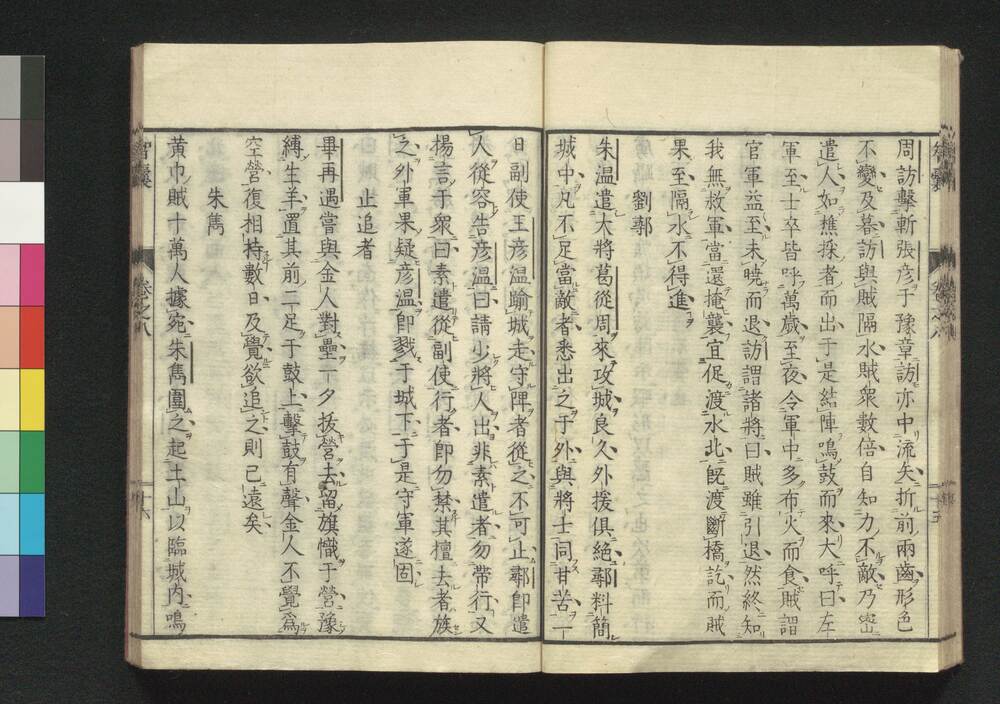 周訪擊斬張彥于豫章訪亦中流矢折前兩齒形色
不變及暮訪與賊隔水賊衆數倍自知力不敵乃密
遣人如樵採者而出于是結陣鳴鼓而來大呼曰左
軍至士卒皆呼萬歲至夜令軍中多布火而食賊謂
官軍益至未曉而退訪謂諸將曰賊雖引退然終知
我無救軍當還掩襲宜促渡水北旣渡斷橋訖而賊
果至隔水不得進
劉鄩
朱溫遣大將葛從周來攻城良久外援俱絕鄩料簡
城中凡不足當敵者悉出之于外與將士同甘苦一
日副使王彥溫踰城走守陴者從之不可止鄩卽遣
人從容告彥溫曰請少將人出非素遣者勿帶行又
揚言于衆曰素遣從副使行者卽勿禁其擅去者族
之外軍果疑彥溫卽戮于城下于是守軍遂固
止追者
畢再遇嘗與金人對壘一夕拔營去留旗幟于營豫
縛生羊置其前二足于鼓上擊鼓有聲金人不覺爲
空營復相持數日及覺欲追之則已遠矣
朱雋
黃巾賊十萬人據宛朱雋圍之起土山以臨城內鳴